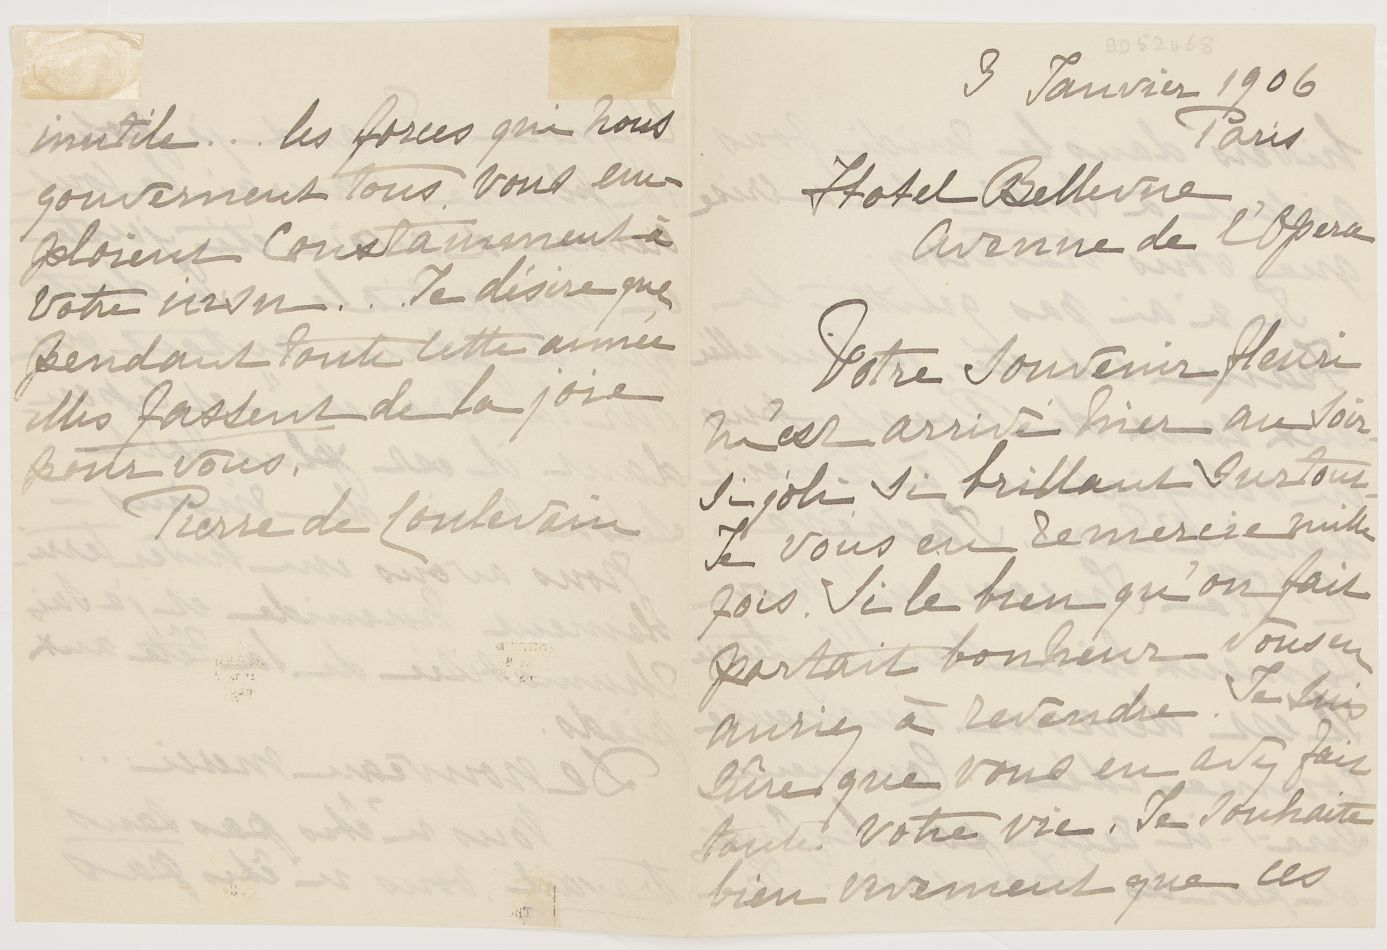 SD 52468
3 Janvier 1906
Paris
Hotel Bellevue
Avenue de l'Opera
Votre souvenir fleuri
m'est arrivé hier au soir
si joli si brillant surtout
Je vous en remercie mille
fois. Si le bien qu'on fait
portait bonheur vous en
auriez à revendre. Je suis
sûre que vous en avez fait
toute votre vie. Je souhaite
bien vivement que ces
inutile... les forces qui nous
gouvernent tous, vous em-
ploient constamment à
votre insu... Je désire que
pendant toute cette année
elles fassent de la joie
pour vous.
Pierre de Coulevain